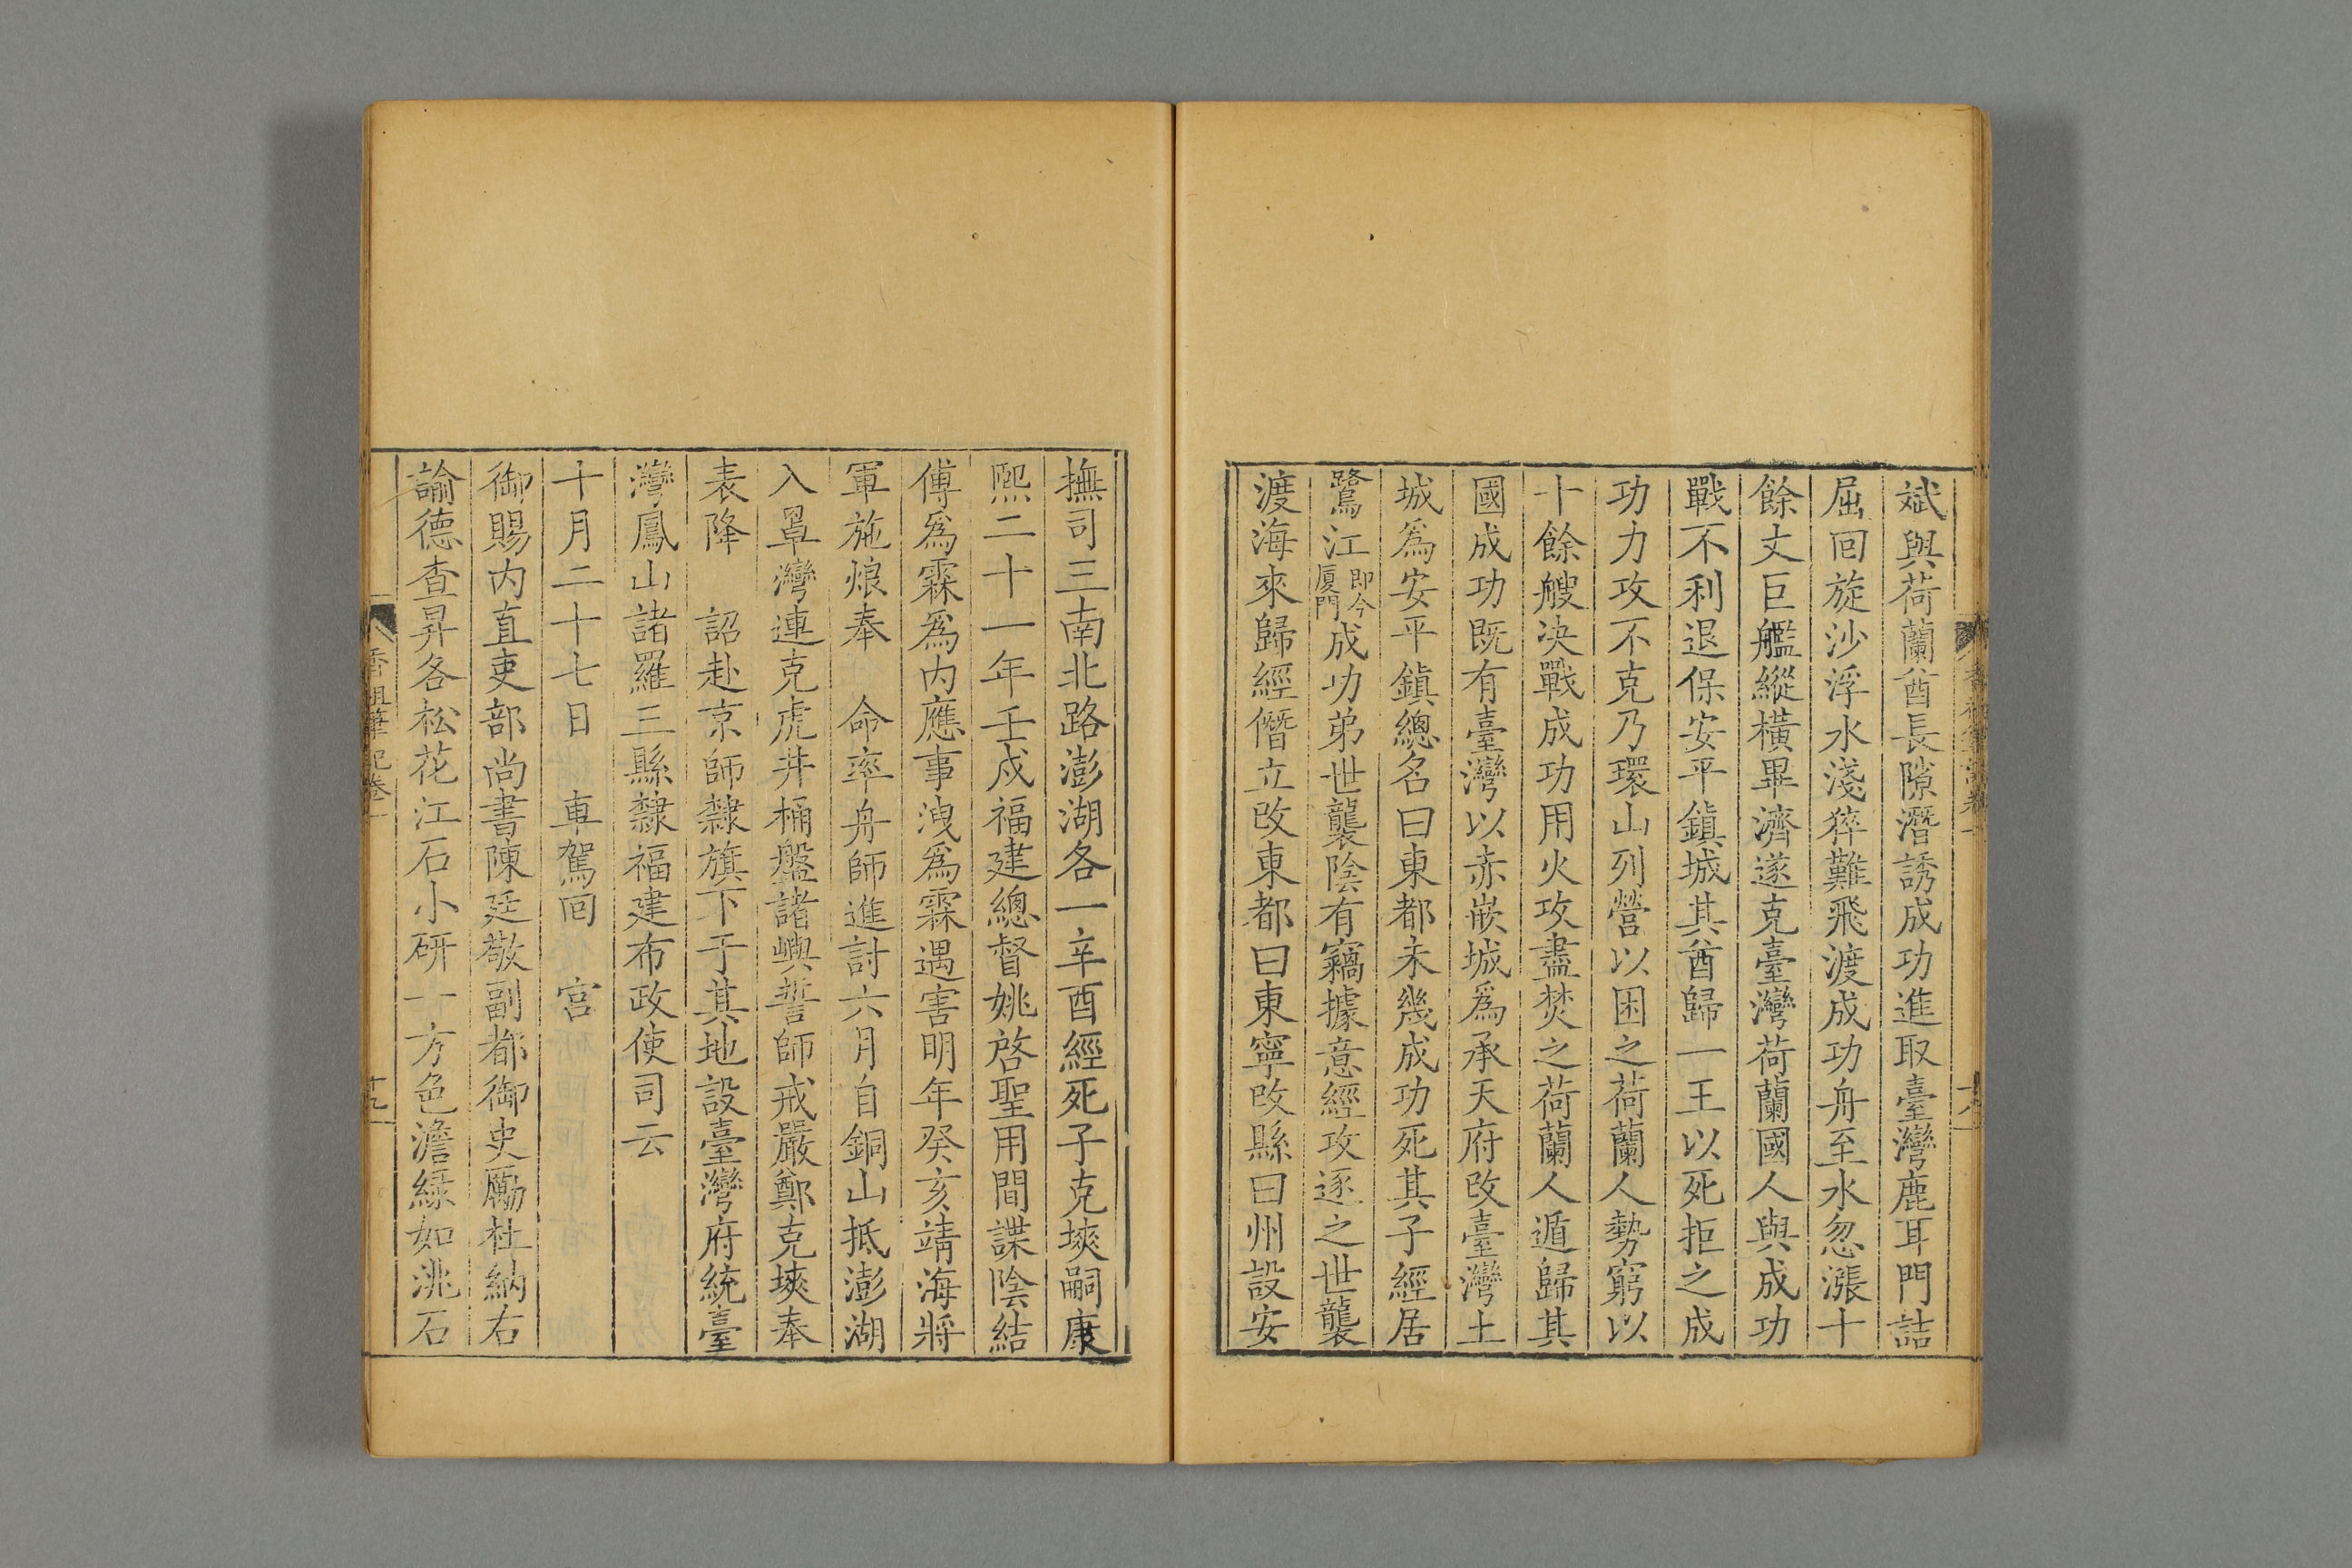 斌與荷蘭酋長隙潛誘成功進取臺灣鹿耳門詰
屈回旋沙浮水淺猝難飛渡成功舟至水忽漲十
餘丈巨艦縱橫畢濟遂克臺灣荷蘭國人與成功
戰不利退保安平鎮城其酋歸一王以死拒之成
功力攻不克乃環山列營以困之荷蘭人勢窮以
十餘艘决戰成功用火攻盡焚之荷蘭人遁歸其
國成功既有臺灣以赤嵌城為承天府改臺灣土
城為安平鎮總名曰東都未幾成功死其子經居
鷺江即今厦門成功弟世襲陰有竊據意經攻逐之世襲
渡海來歸經僭立改東都曰東寧改縣曰州設安
撫司三南北路澎湖各一辛酉經死子克塽嗣康
熙二十一年壬戍福建總督姚啓聖用間諜陰結
傅為霖為内應事洩為霖遇害明年癸亥靖海將
軍施烺奉 命率舟師進討六月自銅山抵澎湖
入罩灣連克虎井桶盤諸嶼誓師戒嚴鄭克塽奉
表降 詔赴京師隸旗下于其地設臺灣府統臺
灣鳳山諸羅三縣隸福建布政使司云
十月二十七日 車駕回 宮
御賜内直吏部尚書陳廷敬副都御史勵杜納右
諭德查昇各松花江石小研一方色澹緑如洮石
香祖筆記卷一
十九